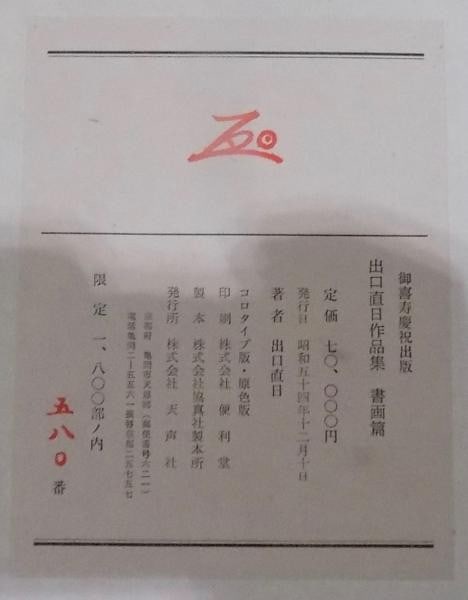 御喜寿慶祝出版
出口直日作品集 書画篇
定価 七〇、〇〇〇円
発行日 昭和五十四年十二月十日
著者 出口直日
コロタイプ版・原色版
印刷 株式会社 便利堂
製本 株式会社協真社製本所
発行所 株式会社 天声社
京都府 亀岡市天恩郷(郵便番号六二一)
電話亀岡二ー五五六一振替京都二五七五七
限定 一、八〇〇部ノ内
五八〇番